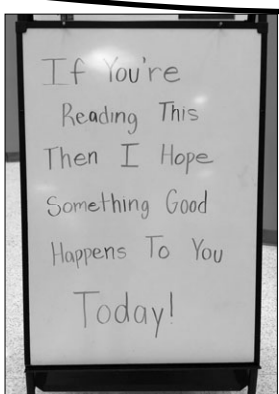 If You're
Reading This
Then I Hope
Something Good
Happens To You
Today!